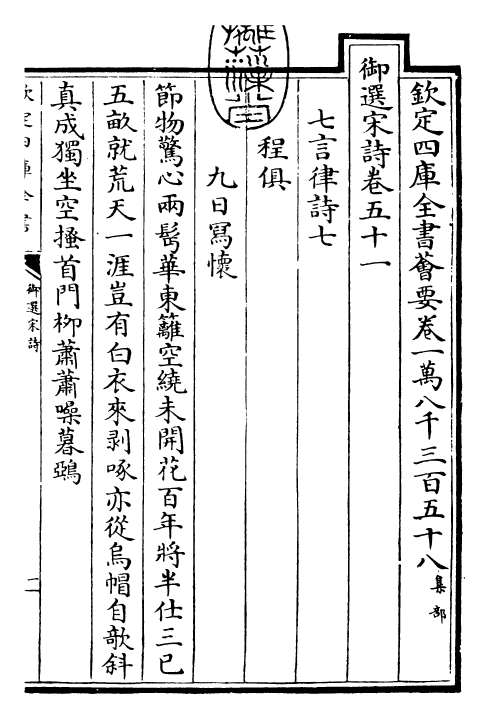 欽定四庫全書薈要卷一萬八千三百五十八 集部
御選宋詩卷五十一
七言律詩七
程俱
九日寫懷
節物驚心兩鬂華東籬空繞未開花百年將半仕三已
五畝就荒天一涯豈有白衣來剥啄亦從烏帽自欹斜
真成獨坐空搔首門柳蕭蕭噪暮鴉
御選宋詩